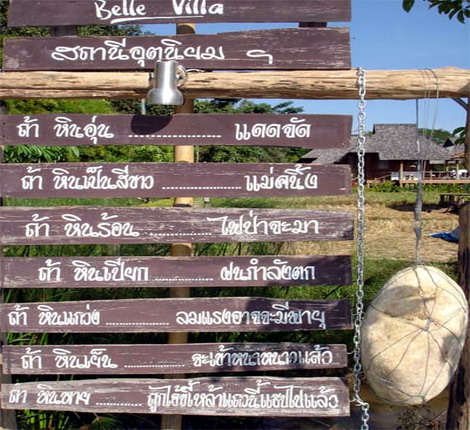 Belle Villa
สถานีอุตุนิยม ๆ
ถ้า หินอุ่น .................. แดดจัด
ถ้า หินเป็นสีขาว .................. แม่คะนิ้ง
ถ้า หินร้อน .................. ไฟป่าจะมา
ถ้า หินเปียก .................. ฝนกำลังตก
ถ้า หินแกว่ง .................. ลมแรงอาจจะมีพายุ
ถ้า หินเย็น .................. จะเข้าหน้าหนาวแล้ว
ถ้า หินหาย .................. ถูกไอ้ขี้เหล้าแถวนี้แฮปไปแล้ว